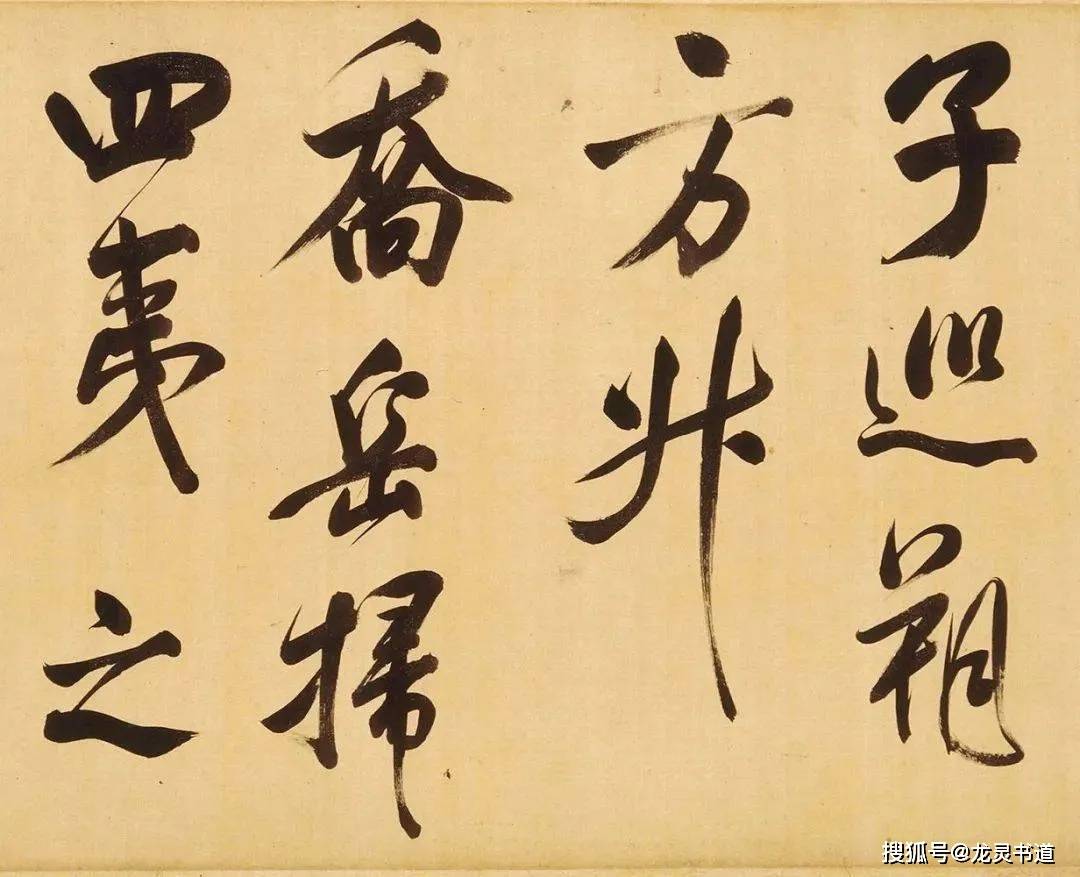 子巡朔
方升
喬岳掃
四夷之
搜狐号@龙灵书道